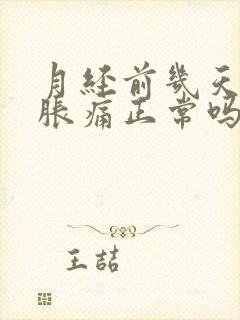 月经前几天
胀痛正常吗
王喆